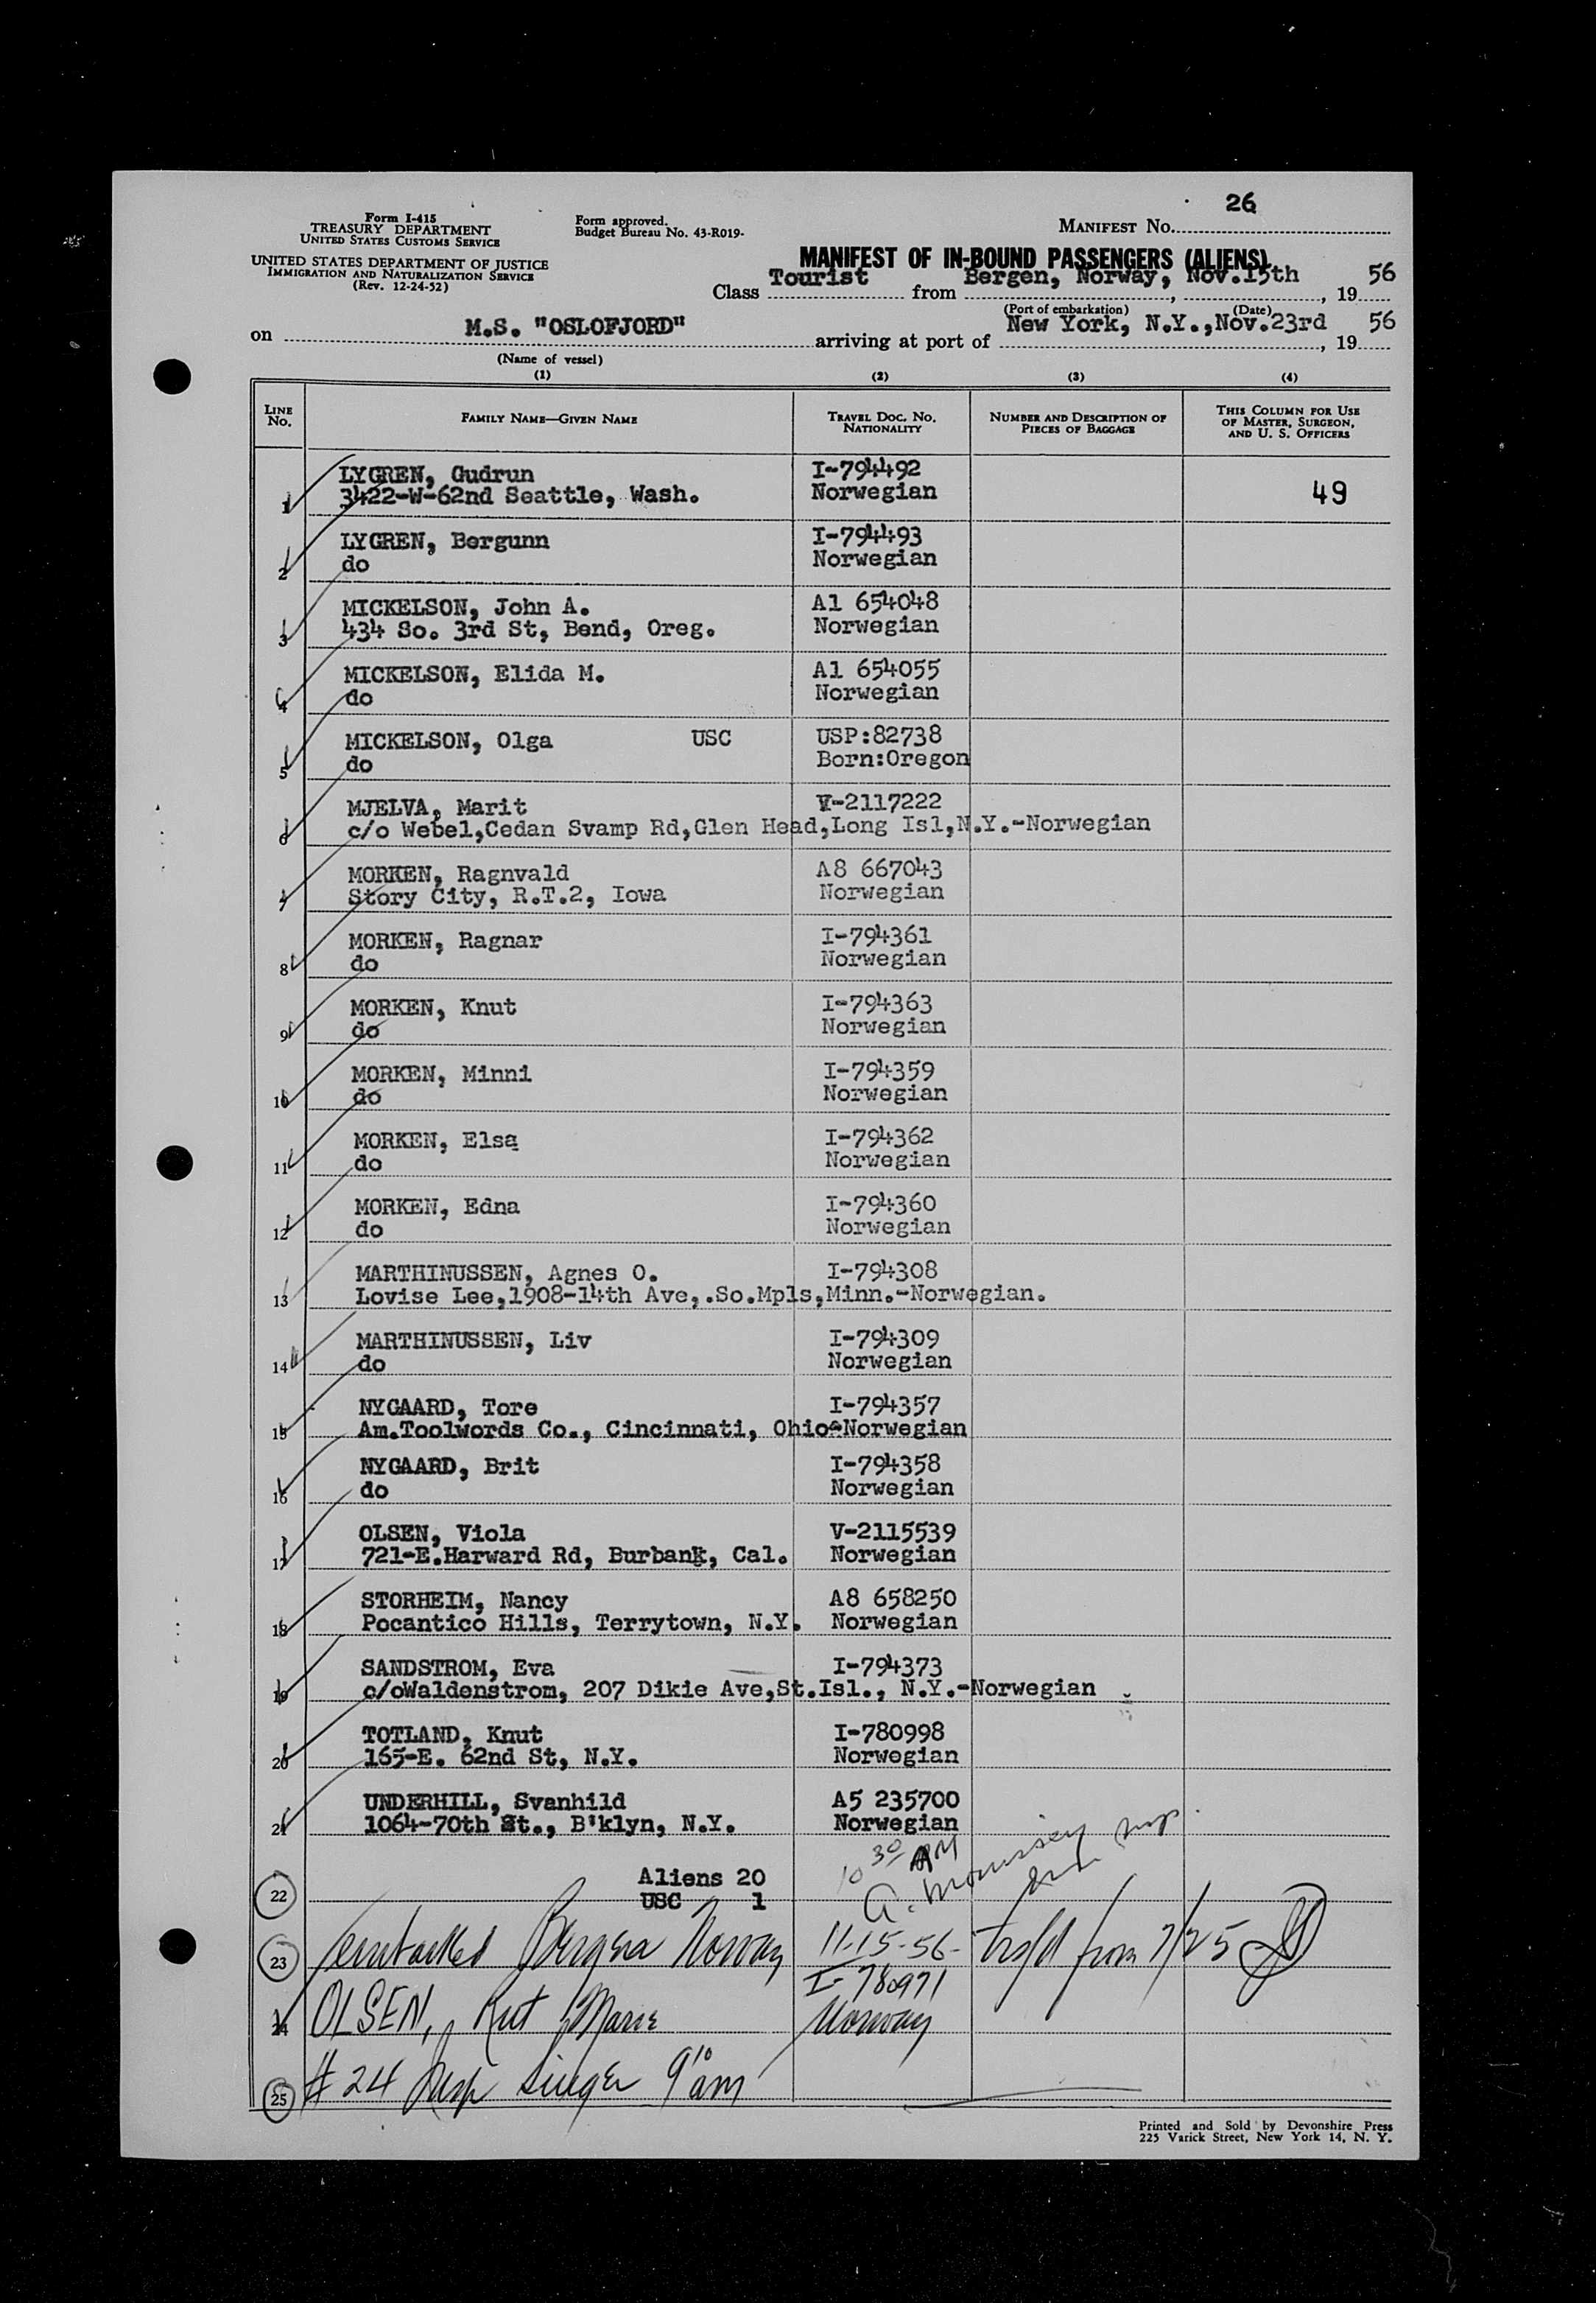 26
Form I-415
TREASURY DEPARTMENT
UNITED STATES CUSTOMS SERVICE
Form approved.
Budget Bureau No. 43-R019-
MANIFEST No.
UNITED STATES DEPARTMENT OF JUSTICE
IMMIGRATION AND NATURALIZATION SERVICE
(Rev. 12-24-52)
MANIFEST OF IN-BOUND PASSENGERS (ALIENS)
Class Tourist from Bergen, Norway, Nov.15th, 19 56
(Port of embarkation) (Date)
on M.S. "OSLOFJORD" arriving at port of New York, N.Y.,Nov.23rd, 19 56
(Name of vessel)
(1) (2) (3) (4)
LINE No. FAMILY NAME—GIVEN NAME TRAVEL DOC. NO. NATIONALITY NUMBER AND DESCRIPTION OF PIECES OF BAGGAGE THIS COLUMN FOR USE OF MASTER, SURGEON, AND U. S. OFFICERS
LYGREN, Gudrun I-794492
1 3422-W-62nd Seattle, Wash. Norwegian 49
LYGREN, Bergunn I-794493
2 do Norwegian
MICKELSON, John A. A1 654048
3 434 So. 3rd St, Bend, Oreg. Norwegian
MICKELSON, Elida M. A1 654055
4 do Norwegian
MICKELSON, Olga USC USP:82738
5 do Born:Oregon
MJELVA, Marit V-2117222
6 c/o Webel,Cedan Svamp Rd,Glen Head,Long Isl,N.Y.-Norwegian
MORKEN, Ragnvald A8 667043
7 Story City, R.T.2, Iowa Norwegian
MORKEN, Ragnar I-794361
8 do Norwegian
MORKEN, Knut I-794363
9 do Norwegian
MORKEN, Minni I-794359
10 do Norwegian
MORKEN, Elsa I-794362
11 do Norwegian
MORKEN, Edna I-794360
12 do Norwegian
MARTHINUSSEN, Agnes O. I-794308
13 Lovise Lee,1908-14th Ave,.So.Mpls,Minn.-Norwegian.
MARTHINUSSEN, Liv I-794309
14 do Norwegian
NYGAARD, Tore I-794357
15 Am.Toolwords Co., Cincinnati, Ohio-Norwegian
NYGAARD, Brit I-794358
16 do Norwegian
OLSEN, Viola V-2115539
17 721-E.Harward Rd, Burbank, Cal. Norwegian
STORHEIM, Nancy A8 658250
18 Pocantico Hills, Terrytown, N.Y. Norwegian
SANDSTROM, Eva I-794373
19 c/oWaldenstrom, 207 Dikie Ave,St.Isl., N.Y.-Norwegian
TOTLAND, Knut I-780998
20 165-E. 62nd St, N.Y. Norwegian
UNDERHILL, Svanhild A5 235700
21 1064-70th St., B'klyn, N.Y. Norwegian
Aliens 20 10 30 AM
22 USC 1
23 embarked Bergen Norway 11-15-56- from 7/25
I-780971
24 OLSEN, Rut Marie Norway
25 # 24 Insp Singer 9 10 am
Printed and Sold by Devonshire Press
225 Varick Street, New York 14, N. Y.